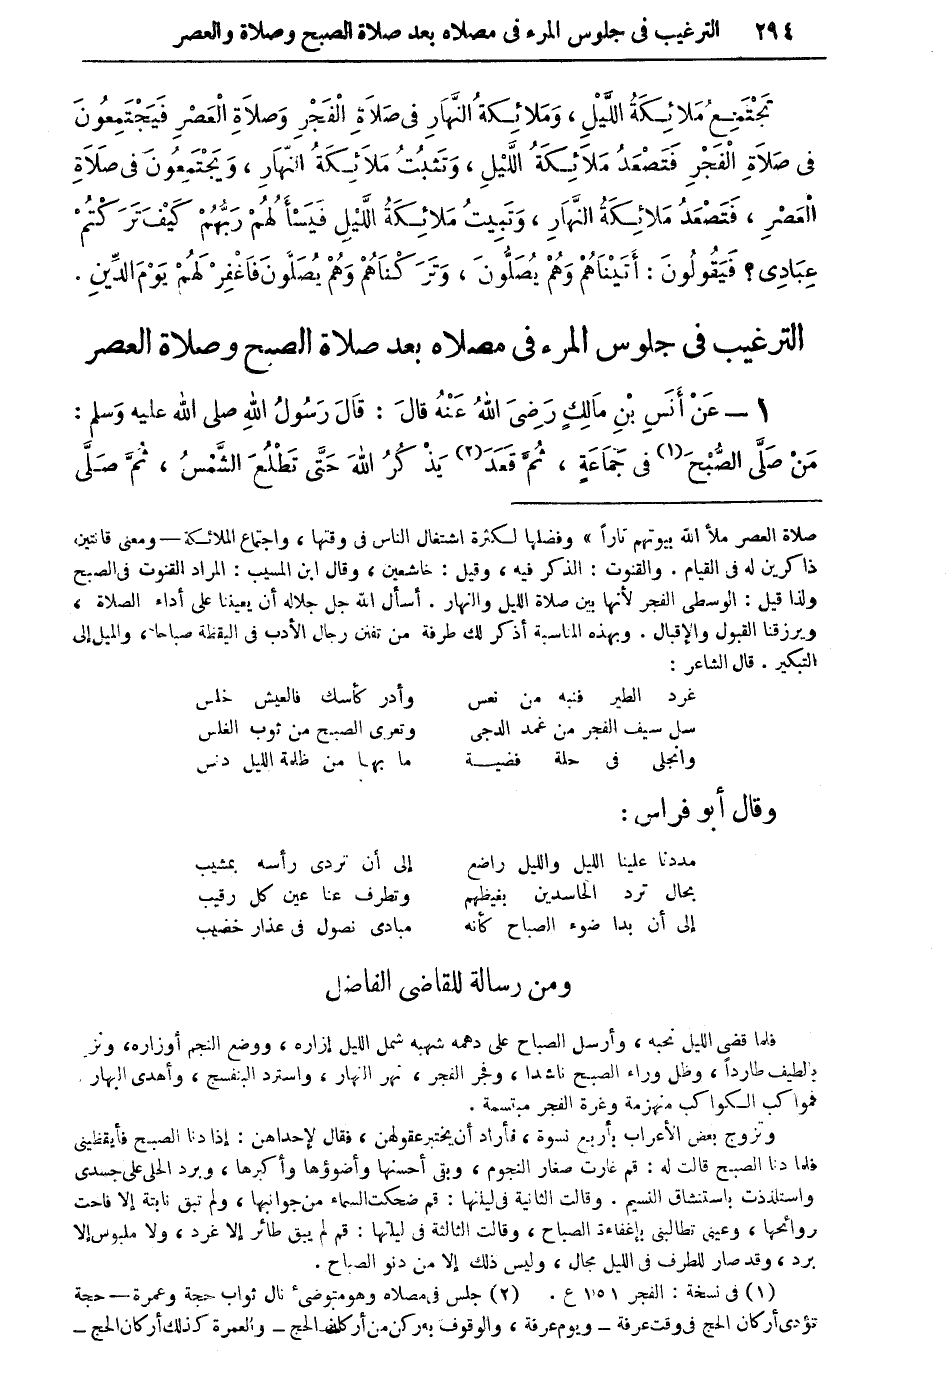 ٢٩٤ الترغيب فى جلوس المرء فى مصلاه بعد صلاة الصبح وصلاة والعصر
تَجْتَمِعُ مَلاَئِكَةُ اللَّيْلِ ، وَمَلاَئِكَةُ النَّهَارِ فى صَلاَةِ الْفَجْرِ وَصَلاَةِ الْعَصْرِ فَيَجْتَمِعُونَ
فى صَلاَةِ الْفَجْرِ فَتَصْعَدُ مَلاَئِكَةُ اللَّيْلِ ، وَتَثْبُتُ مَلاَئِكَةُ النَّهَارِ ، وَيَجْتَمِعُونَ فى صَلاَةِ
الْعَصْرِ ، فَتَصْعَدُ مَلاَئِكَةُ النَّهَارِ ، وَتَبِيتُ مَلاَئِكَةُ اللَّيْلِ فَيَسْأَلُهُمْ رَبُّهُمْ كَيْفَ تَرَكْتُمْ
عِبَادِى؟ فَيَقُولُونَ : أَتَيْنَاهُمْ وَهُمْ يُصَلُّونَ ، وَتَرَكْنَاهُمْ وَهُمْ يُصَلُّونَ فَاغْفِرْ لَهُمْ يَوْمَ الدِّينِ .
الترغيب فى جلوس المرء فى مصلاه بعد صلاة الصبح وصلاة العصر
١ – عَنْ أَنَسِ بْنِ مَالِكٍ رَضِىَ اللهُ عَنْهُ قالَ : قَالَ رَسُولُ اللهِ صلى الله عليه وَسلم :
مَنْ صَلَّى الصُّبْحَ (١) فى جَمَاعَةٍ ، ثُمَّ قَعَدَ (٢) يَذْكُرُ اللهَ حَتَّى تَطْلُعَ الشَّمْسُ ، ثُمَّ صَلَّى
صلاة العصر ملأ الله بيوتهم ناراً » وفضلها لكثرة اشتغال الناس فى وقتها ، واجتماع الملائكة — ومعنى قانتين،
ذاكرين له فى القيام . والقنوت : الذكر فيه ، وقيل : خاشعين ، وقال ابن المسيب : المراد القنوت فى الصبح
ولذا قيل : الوسطى الفجر لأنها بين صلاة الليل والنهار . أسأل الله جل جلاله أن يعيننا على أداء الصلاة ،
ويرزقنا القبول والإقبال . وبهذه المناسبة أذكر لك طرفة من تفنن رجال الأدب فى اليقظة صباحا، والميل إلى
التبكير . قال الشاعر :
غرد الطير فنبه من نعس وأدر كأسك فالعيش خلس
سل سيف الفجر من غمد الدجى وتعرى الصبح من ثوب الغلس
وانجلى فى حلة فضيـة ما بها من ظلمة الليل دنس
وقال أبو فراس :
مددنا علينا الليل والليل راضع إلى أن تردى رأسه بمشيب
بحال ترد الحاسدين بغيظهم وتطرف عنا عين كل رقيب
إلى أن بدا ضوء الصباح كأنه مبادى نصول فى عذار خضيب
ومن رسالة للقاضى الفاضل
فلما قضى الليل نحبه ، وأرسل الصباح على دهمه شهبه شمل الليل إزاره ، ووضع النجم أوزاره، ونز
بالطيف طارداً ، وظل وراء الصبح ناشدا ، وفجر الفجر ، نهر النهار ، واسترد البنفسج ، وأهدى البهار .
فمواكب الكواكب منهزمة وغرة الفجر مبتسمة .
وتزوج بعض الأعراب بأربع نسوة ، فأراد أن يختبر عقولهن ، فقال لإحداهن : إذا دنا الصبح فأيقظينى
فلما دنا الصبح قالت له : قم غارت صغار النجوم ، وبقى أحسنها وأضوؤها وأكبرها ، وبرد الحلى على جسدى
واستلذذت باستنشاق النسيم . وقالت الثانية فى ليلتها : قم ضحكت السماء من جوانبها ، ولم تبق نابتة إلا فاحت
روائحها ، وعينى تطالبنى بإغفاءة الصباح ، وقالت الثالثة فى ليلتها : قم لم يبق طائر إلا غرد ، ولا ملبوس إلا
برد ، وقد صار للطرف فى الليل مجال ، وليس ذلك إلا من دنو الصباح .
(١) فى نسخة : الفجر ١٥١ ع . (٢) جلس فى مصلاه وهو متوضئ نال ثواب حجة وعمرة — حجة
تؤدى أركان الحج فى وقت عرفة – ويوم عرفة ، والوقوف به ركن من أركان الحج – والعمرة كذلك أركان الحج –